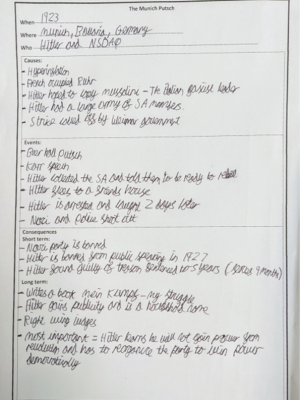 The Munich Putsch
When 1923
Where Munich, Bavaria, Germany
Who Hitler and NSDAP
Causes:
- Hyperinflation
- French occupied Ruhr
- Hitler hoped to copy mussolini - The italian facist leader
- Hitler had a large army of SA members
- Strike called off by Weimar government
Events:
- Beer hall putsch
- Kahr speech
- Hitler collected the SA and told them to be ready to rebel
- Hitler flees to a friends house
- Hitler is arrested and caught 2 days later
- Nazi and police shoot out
Consequences
Short term:
- Nazi party is banned
- Hitler is banned from public speaking in 1927
- Hitler found guilty of treason sentenced to 5 years (served 9 months)
Long term:
- Writes a book mein Kampf - my struggle
- Hitler gains publicity and is a household name
- Right wing judges
- most important = Hitler learns he will not gain power from
revolution and has to reorganise the party to win power
democratically